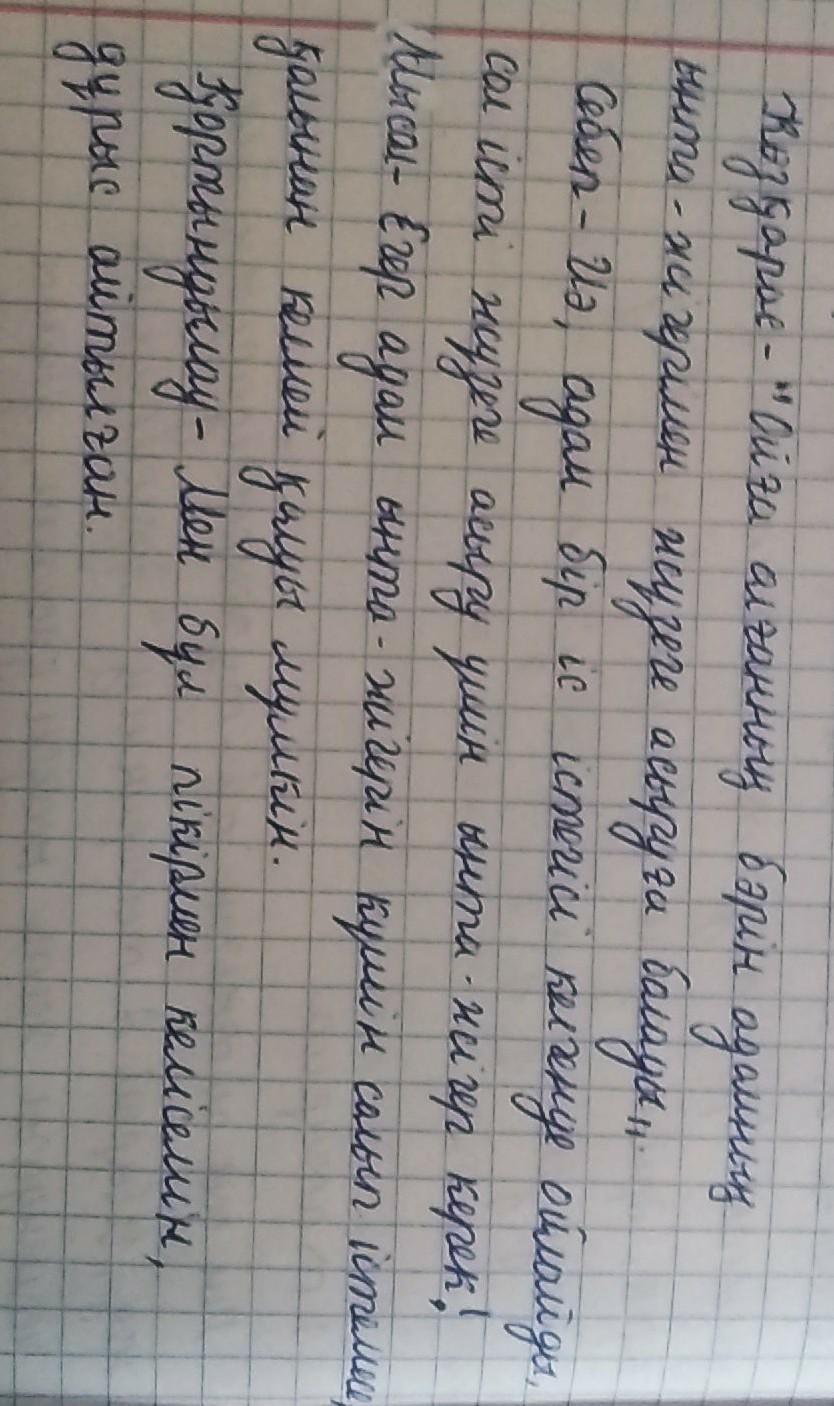 Көзқарас - "Ойға алғанның бәрін адамның
ынта - жігерімен жүзеге асыруға болады".
Себеп - Иә, адам бір іс істегісі келгенде ойлайды,
сол істі жүзеге асыру үшін ынта - жігер керек!
Мысал - Егер адам ынта - жігерін күшін салып істемесе,
қолынан келмей қалуы мүмкін.
Қортындылау - Мен бұл пікірмен келісемін,
дұрыс айтылған.